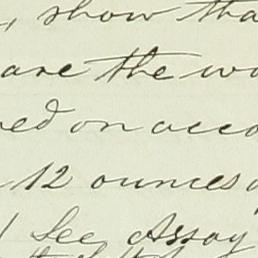 , show tha
are the wo
ed on acco
12 ounces
See Assay